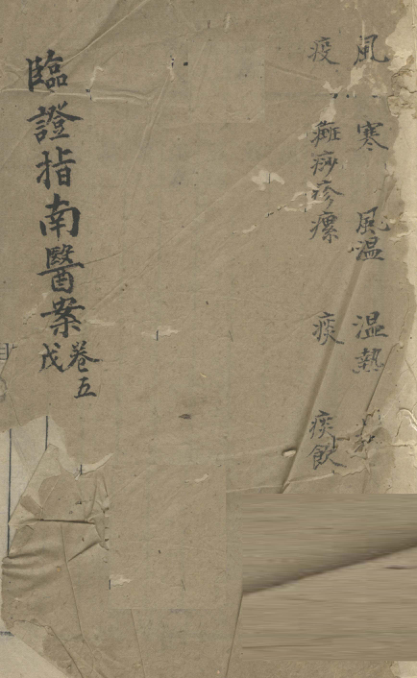 風 寒 風温 温熱 暑
疫 癍痧疹瘰 痰 痰飲
臨證指南醫案卷五
戊